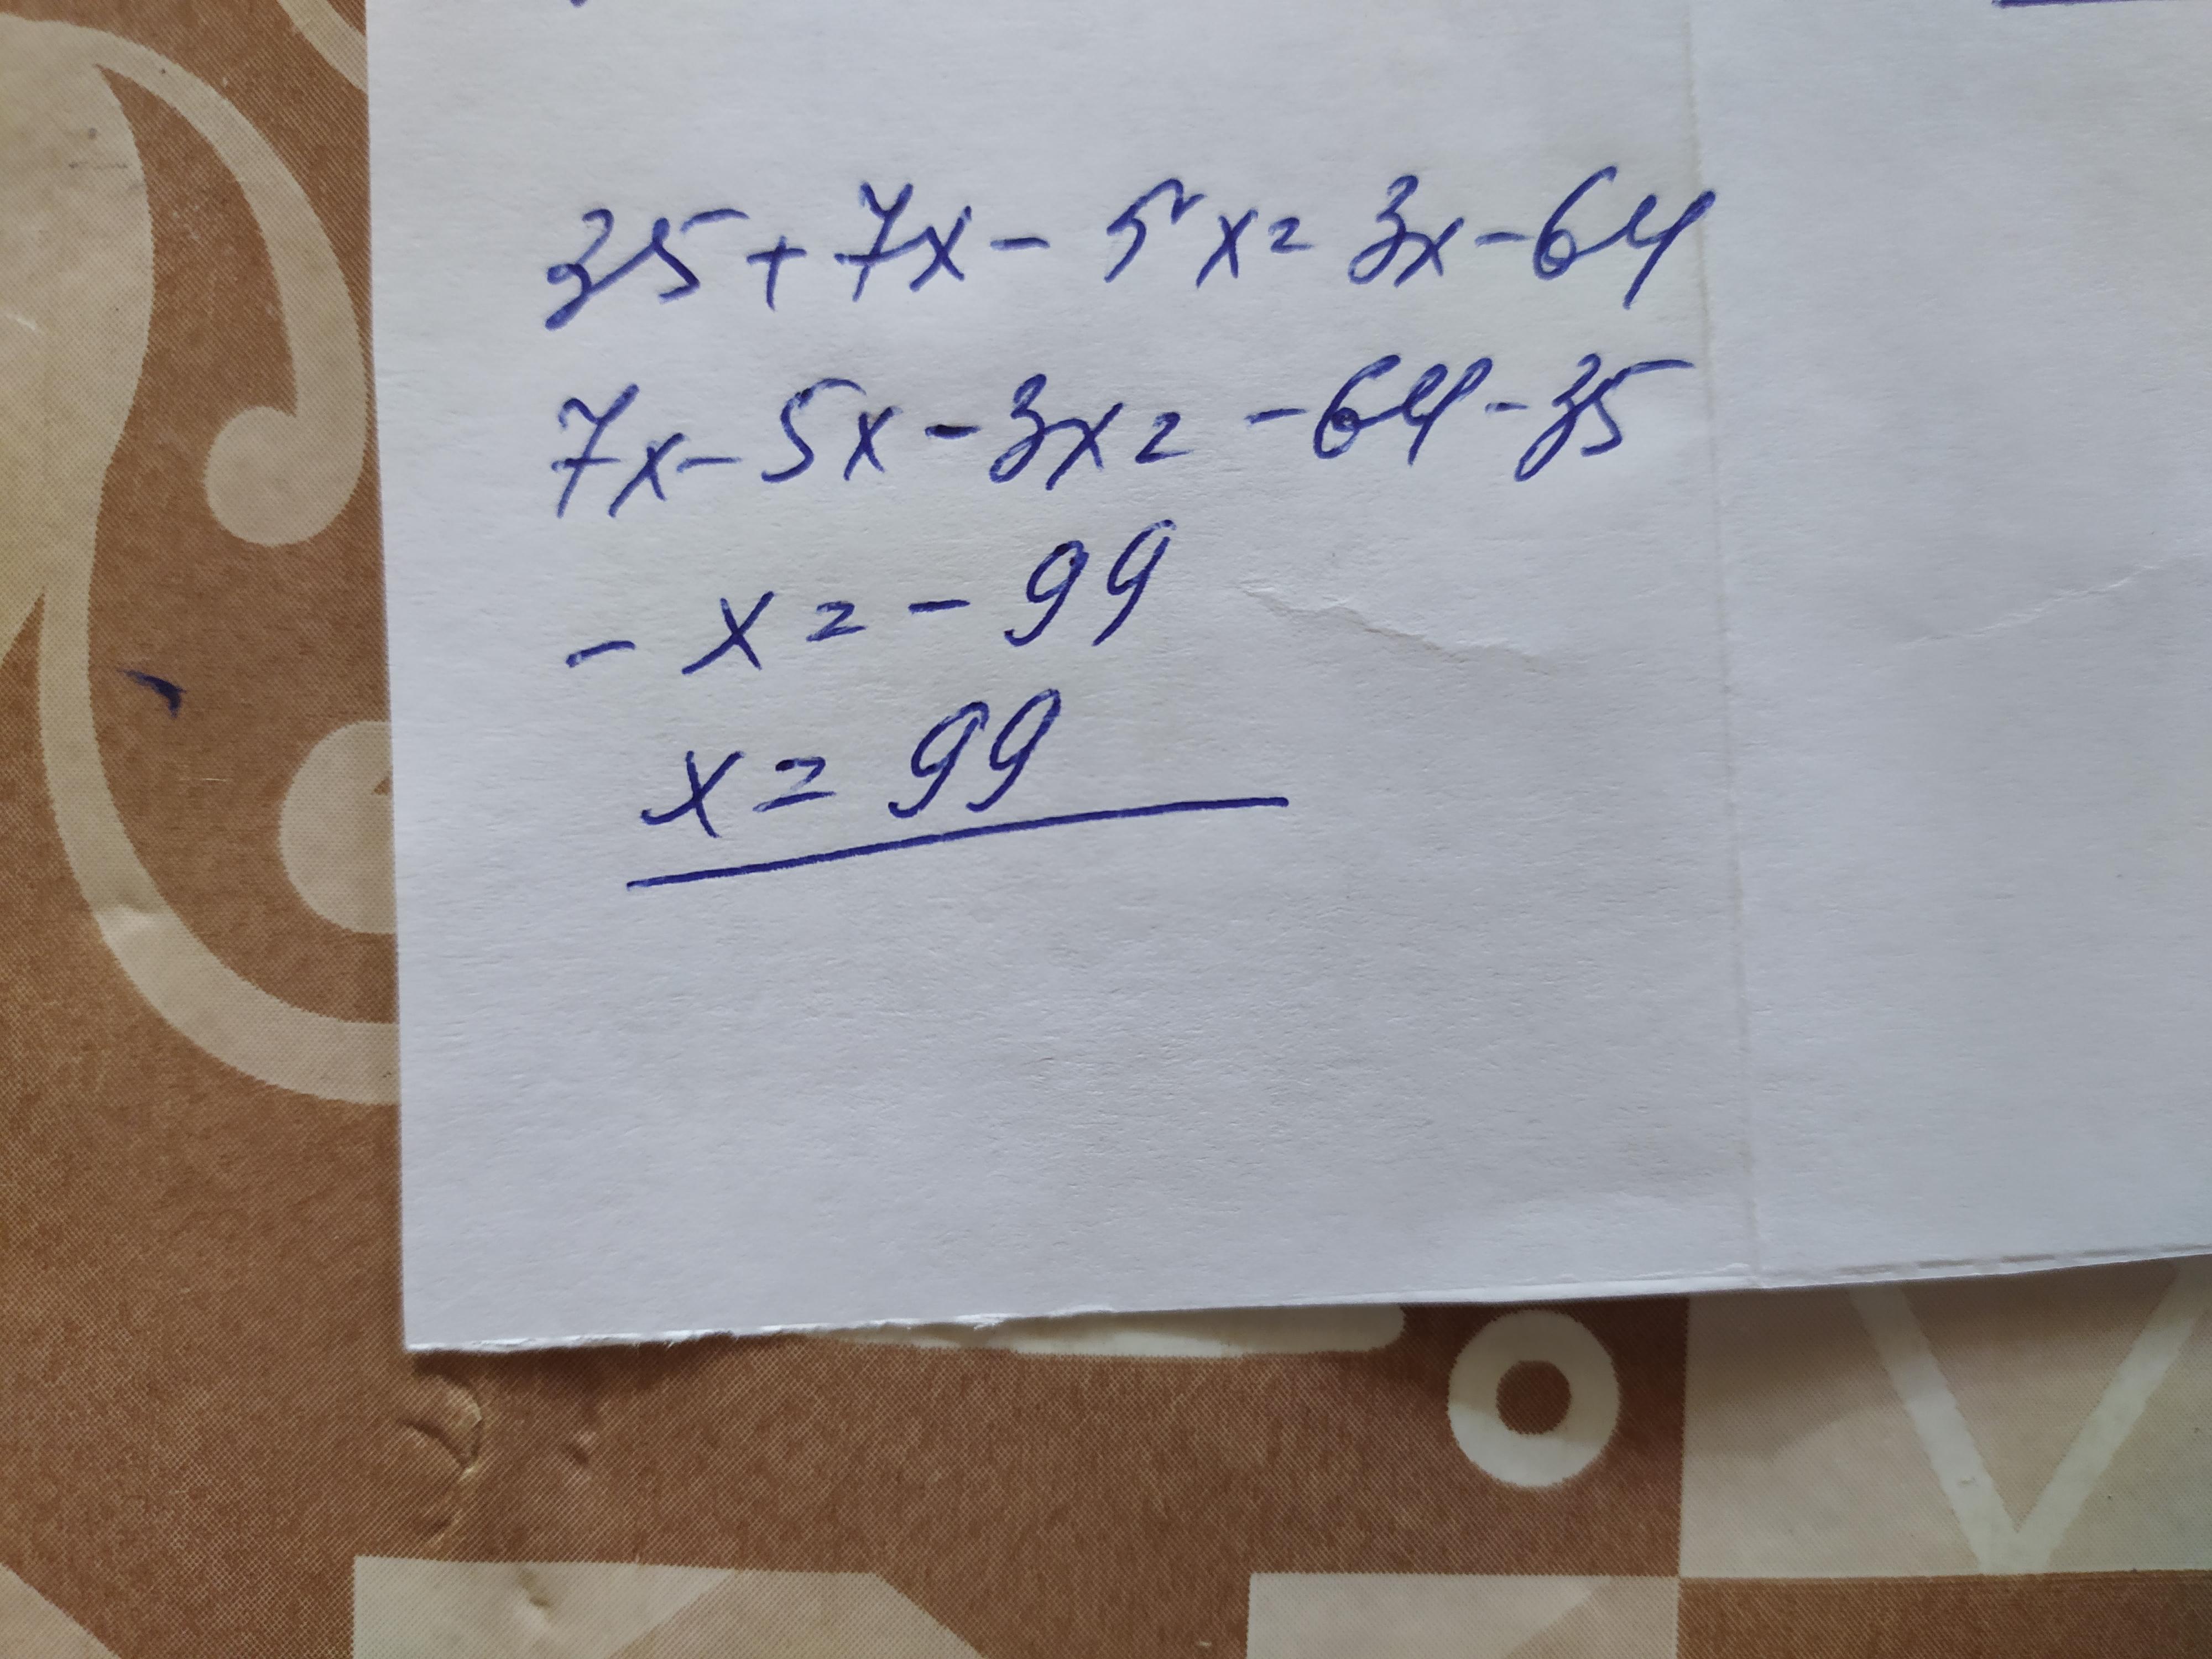 35 + 7x - 5x = 3x - 64
7x - 5x - 3x = - 64 - 35
- x = - 99
x = 99